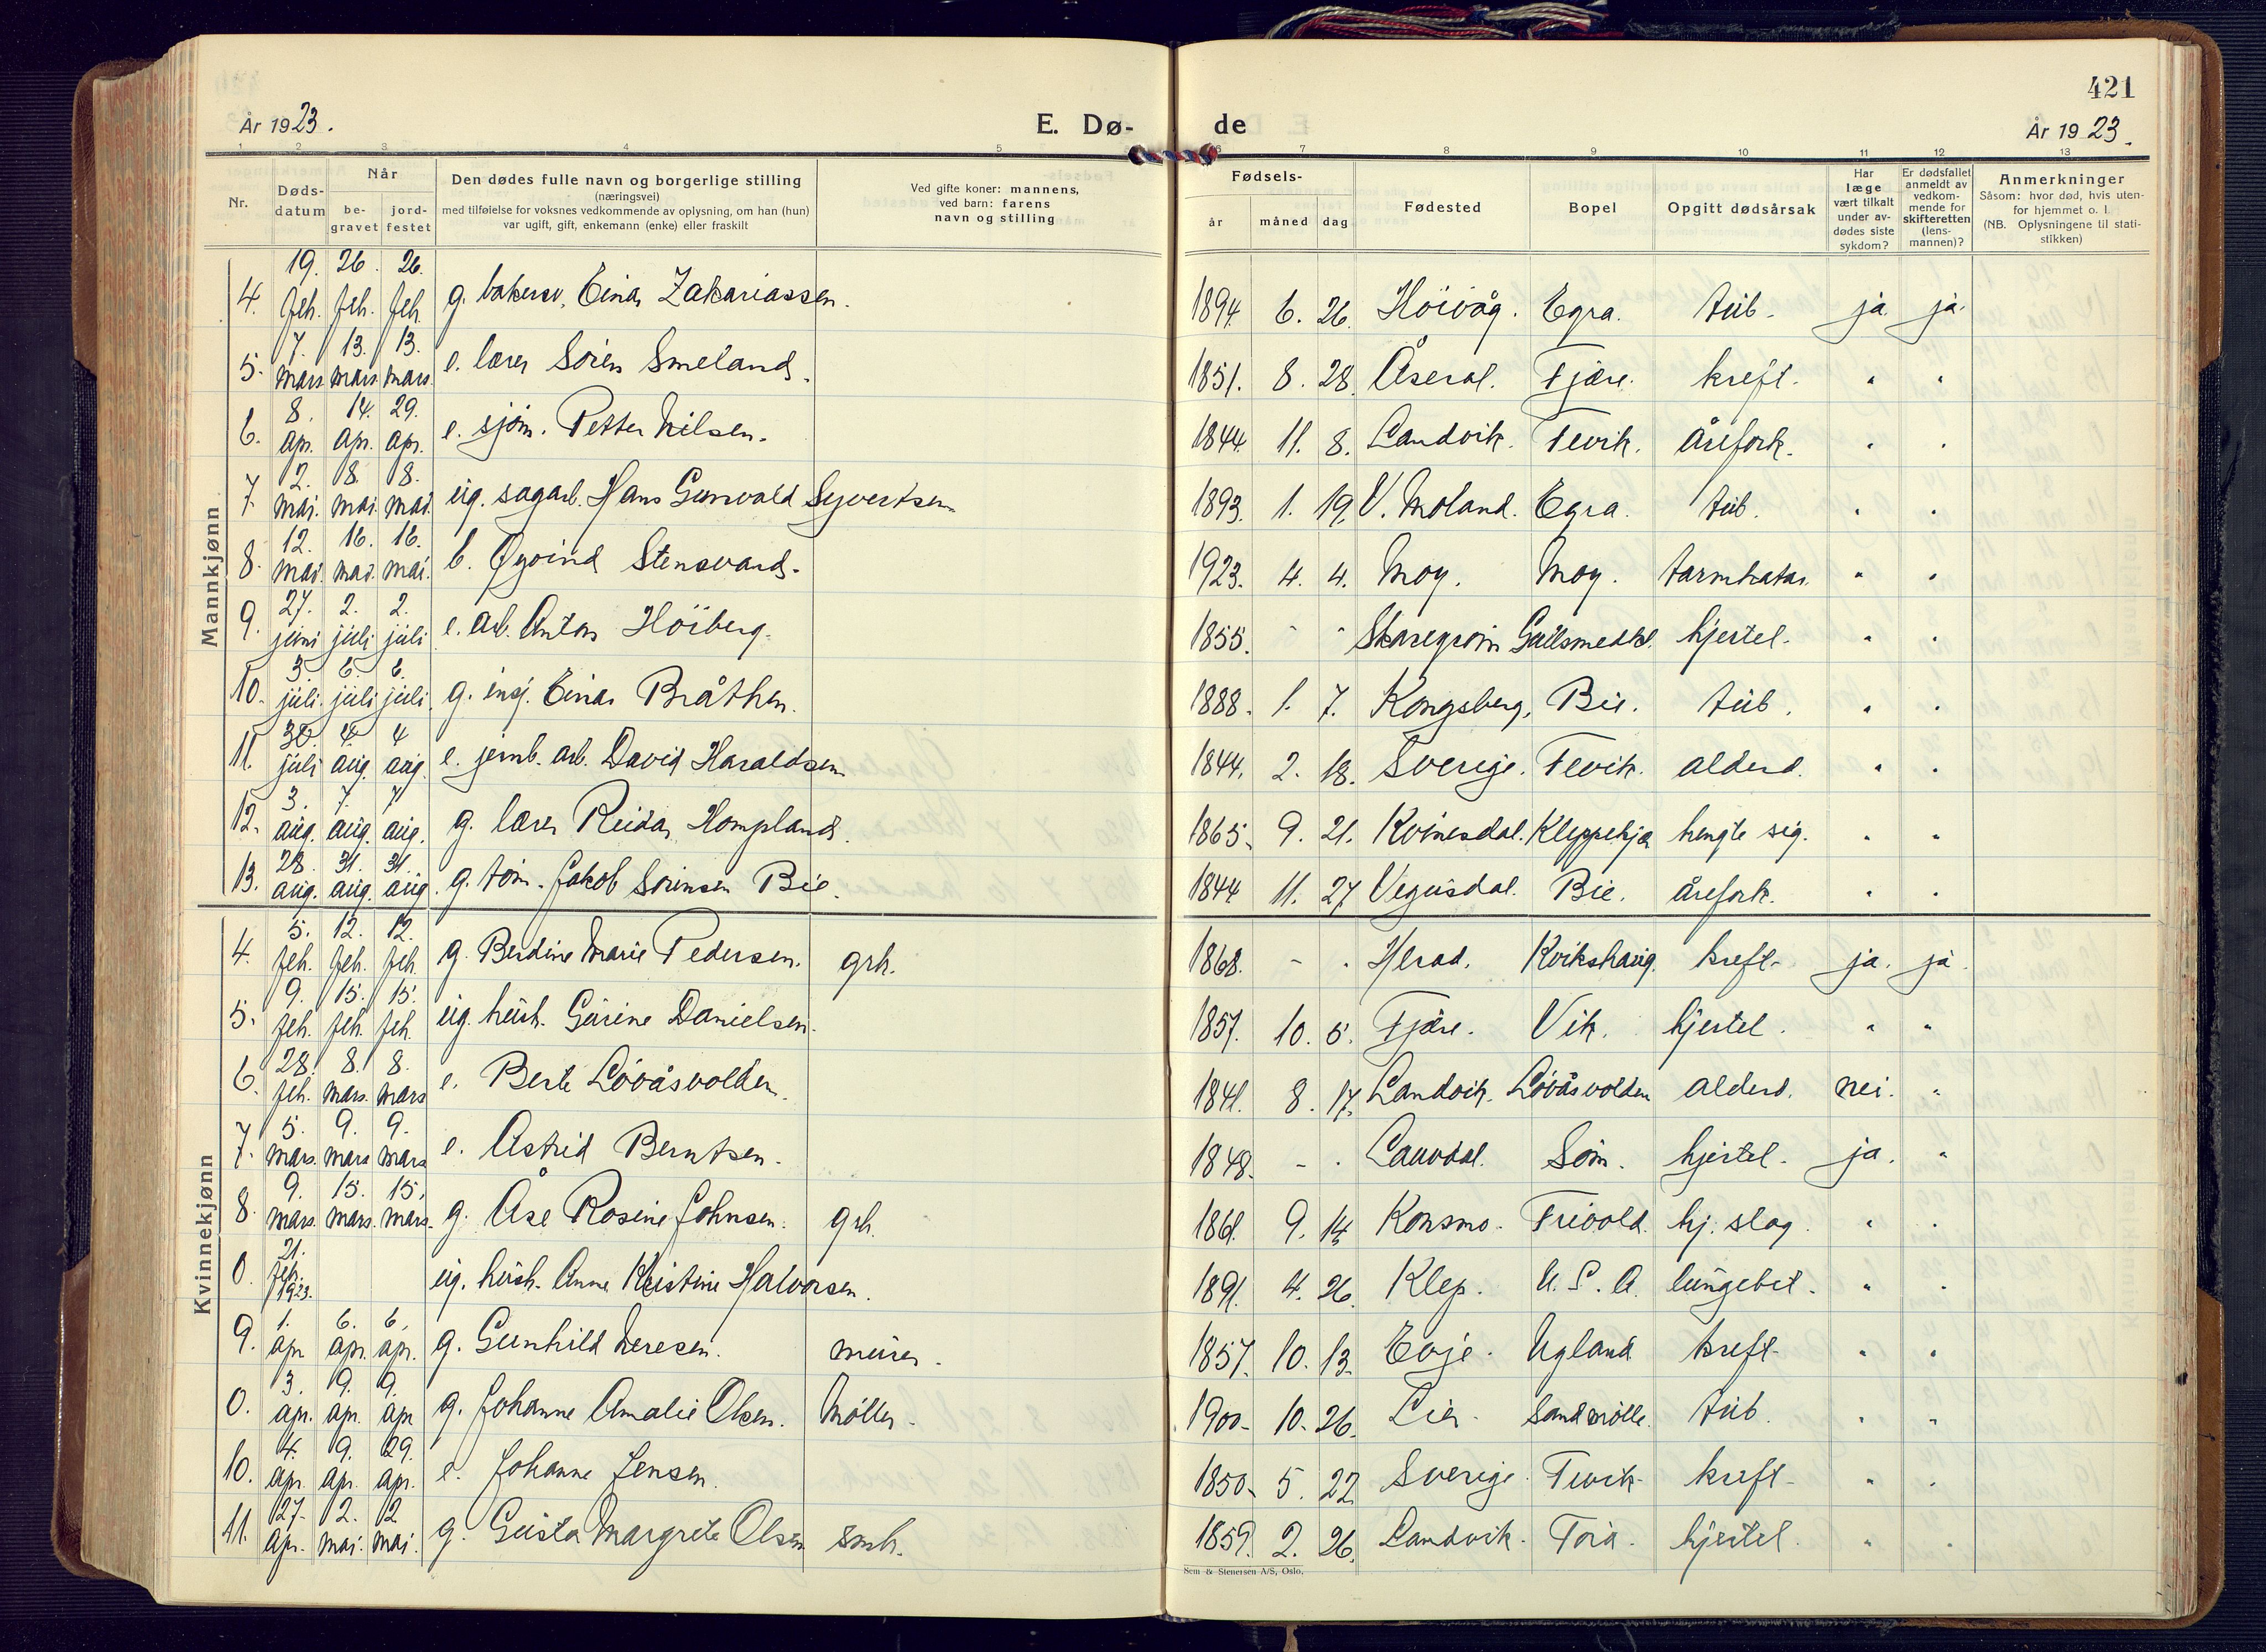 421
År 1923. E. Dø- de År 1923.
1 2 3 4 5 6 7 8 9 10 11 12 13
Nr.
Døds-
datum
Når
be-
gravet
jord-
festet
Den dødes fulle navn og borgerlige stilling
(næringsvei)
med tilføielse for voksnes vedkommende av oplysning, om han (hun)
var ugift, gift, enkemann (enke) eller fraskilt
Ved gifte koner: mannens,
ved barn: farens
navn og stilling
Fødsels-
år måned dag
Fødested
Bopel
Opgitt dødsårsak
Har
læge
vært tilkalt
under av-
dødes siste
sykdom?
Er dødsfallet
anmeldt av
vedkom-
mende for
skifteretten
(lens-
mannen)?
Anmerkninger
Såsom: hvor død, hvis uten-
for hjemmet o. l.
(NB. Oplysningene til stati-
stikken)
Mannkjønn
4. 19. feb. 26. feb. 26. feb. g. bakersv. Einar Zakariassen. 1894 6. 26. Höivåg. Egra. tub. ja. ja.
5. 7. mars 13. mars 13. mars. e. lærer Sören Smeland. 1851. 8. 28. Åseral. Fjære. kreft. " "
6. 8. apr. 14. apr. 29. apr. e. sjöm. Petter Nilsen. 1844. 11. 8. Landvik. Fevik. årefork. " "
7. 2. mai. 8. mai. 8. mai. ug. sagarb. Hans Gunvald Syvertsen. 1893. 1. 19. V. Moland. Egra. tub. " "
8. 12. mai. 16. mai. 16. mai. b. Øyvind Stensvand. 1923. 4. 4. Moy. Moy. tarmkatar. " "
9. 27. juni 2. juli 2. juli e. arb. Anton Höiberg. 1855. - - hjertel. " "
10. 3. juli. 6. juli 6. juli. g. insj. Einar Bråthen. 1888. 1. 7. Kongsberg. Bie. tub. " "
11. 30. juli 4. aug. 4 aug. e. jernb. arb. David Haraldsen. 1844. 2. 18. Sverige. Fevik. alderd. " "
12. 3. aug. 7. aug. 7 aug. g. lærer Reidar Hompland. 1865. 9. 21. Kvinesdal. Kleppekjær hengte sig. " "
13. 28. aug. 31. aug. 31. aug. g. töm. Jakob Sörensen Bie. 1844 11. 27 Vegusdal. Bie. årefork. " "
Kvinnekjønn
4. 5. feb. 12. feb. 12. feb. g. Berdine Marie Pedersen. grb. 1868. - - Herad. Kvikshaug. kreft. ja. ja.
5. 9. feb. 15. feb. 15. feb. ug. hush. Gurine Danielsen. 1857. 10. 5. Fjære. Vik. hjertel. " "
6. 28. feb. 8. mars. 8. mars e. Berte Lövåsvolden. 1841. 8. 17. Landvik. Lövåsvolden alderd. nei. "
7. 5. mars. 9. mars 9. mars e. Astrid Berntsen. 1848. - - Laudal. Söm. hjertel. ja. "
8. 9. mars. 15. mars. 15. mars. g. Åse Rosine Johnsen. grb. 1861. 9. 14. Konsmo. Frivold. hj. slag. " "
0. 21. feb. 1923. ug. hush. Anne Kristine Halvorsen. 1891. 4. 26. Klep. U.S.A. lungebet. " "
9. 1. apr 6. apr. 6. apr. g. Gunhild Teresen. murer. 1857. 10. 13. Evje. Ugland kreft. " "
0. 3. apr. 9. apr. 9. apr g. Johanne Amalie Olsen. Møller. 1900. 10. 26. Lier. Sandmölle. tub. " "
10. 4. apr. 9. apr. 29. apr. e. Johanne Jensen. 1850. 5. 22. Sverige. Fevik. kreft. " "
11. 27. apr. 2. mai. 2 mai. g. Gusta Margrete Olsen smb. 1859. 2. 26. Landvik. hjertel. " "
Sem & Stenersen A/S, Oslo.